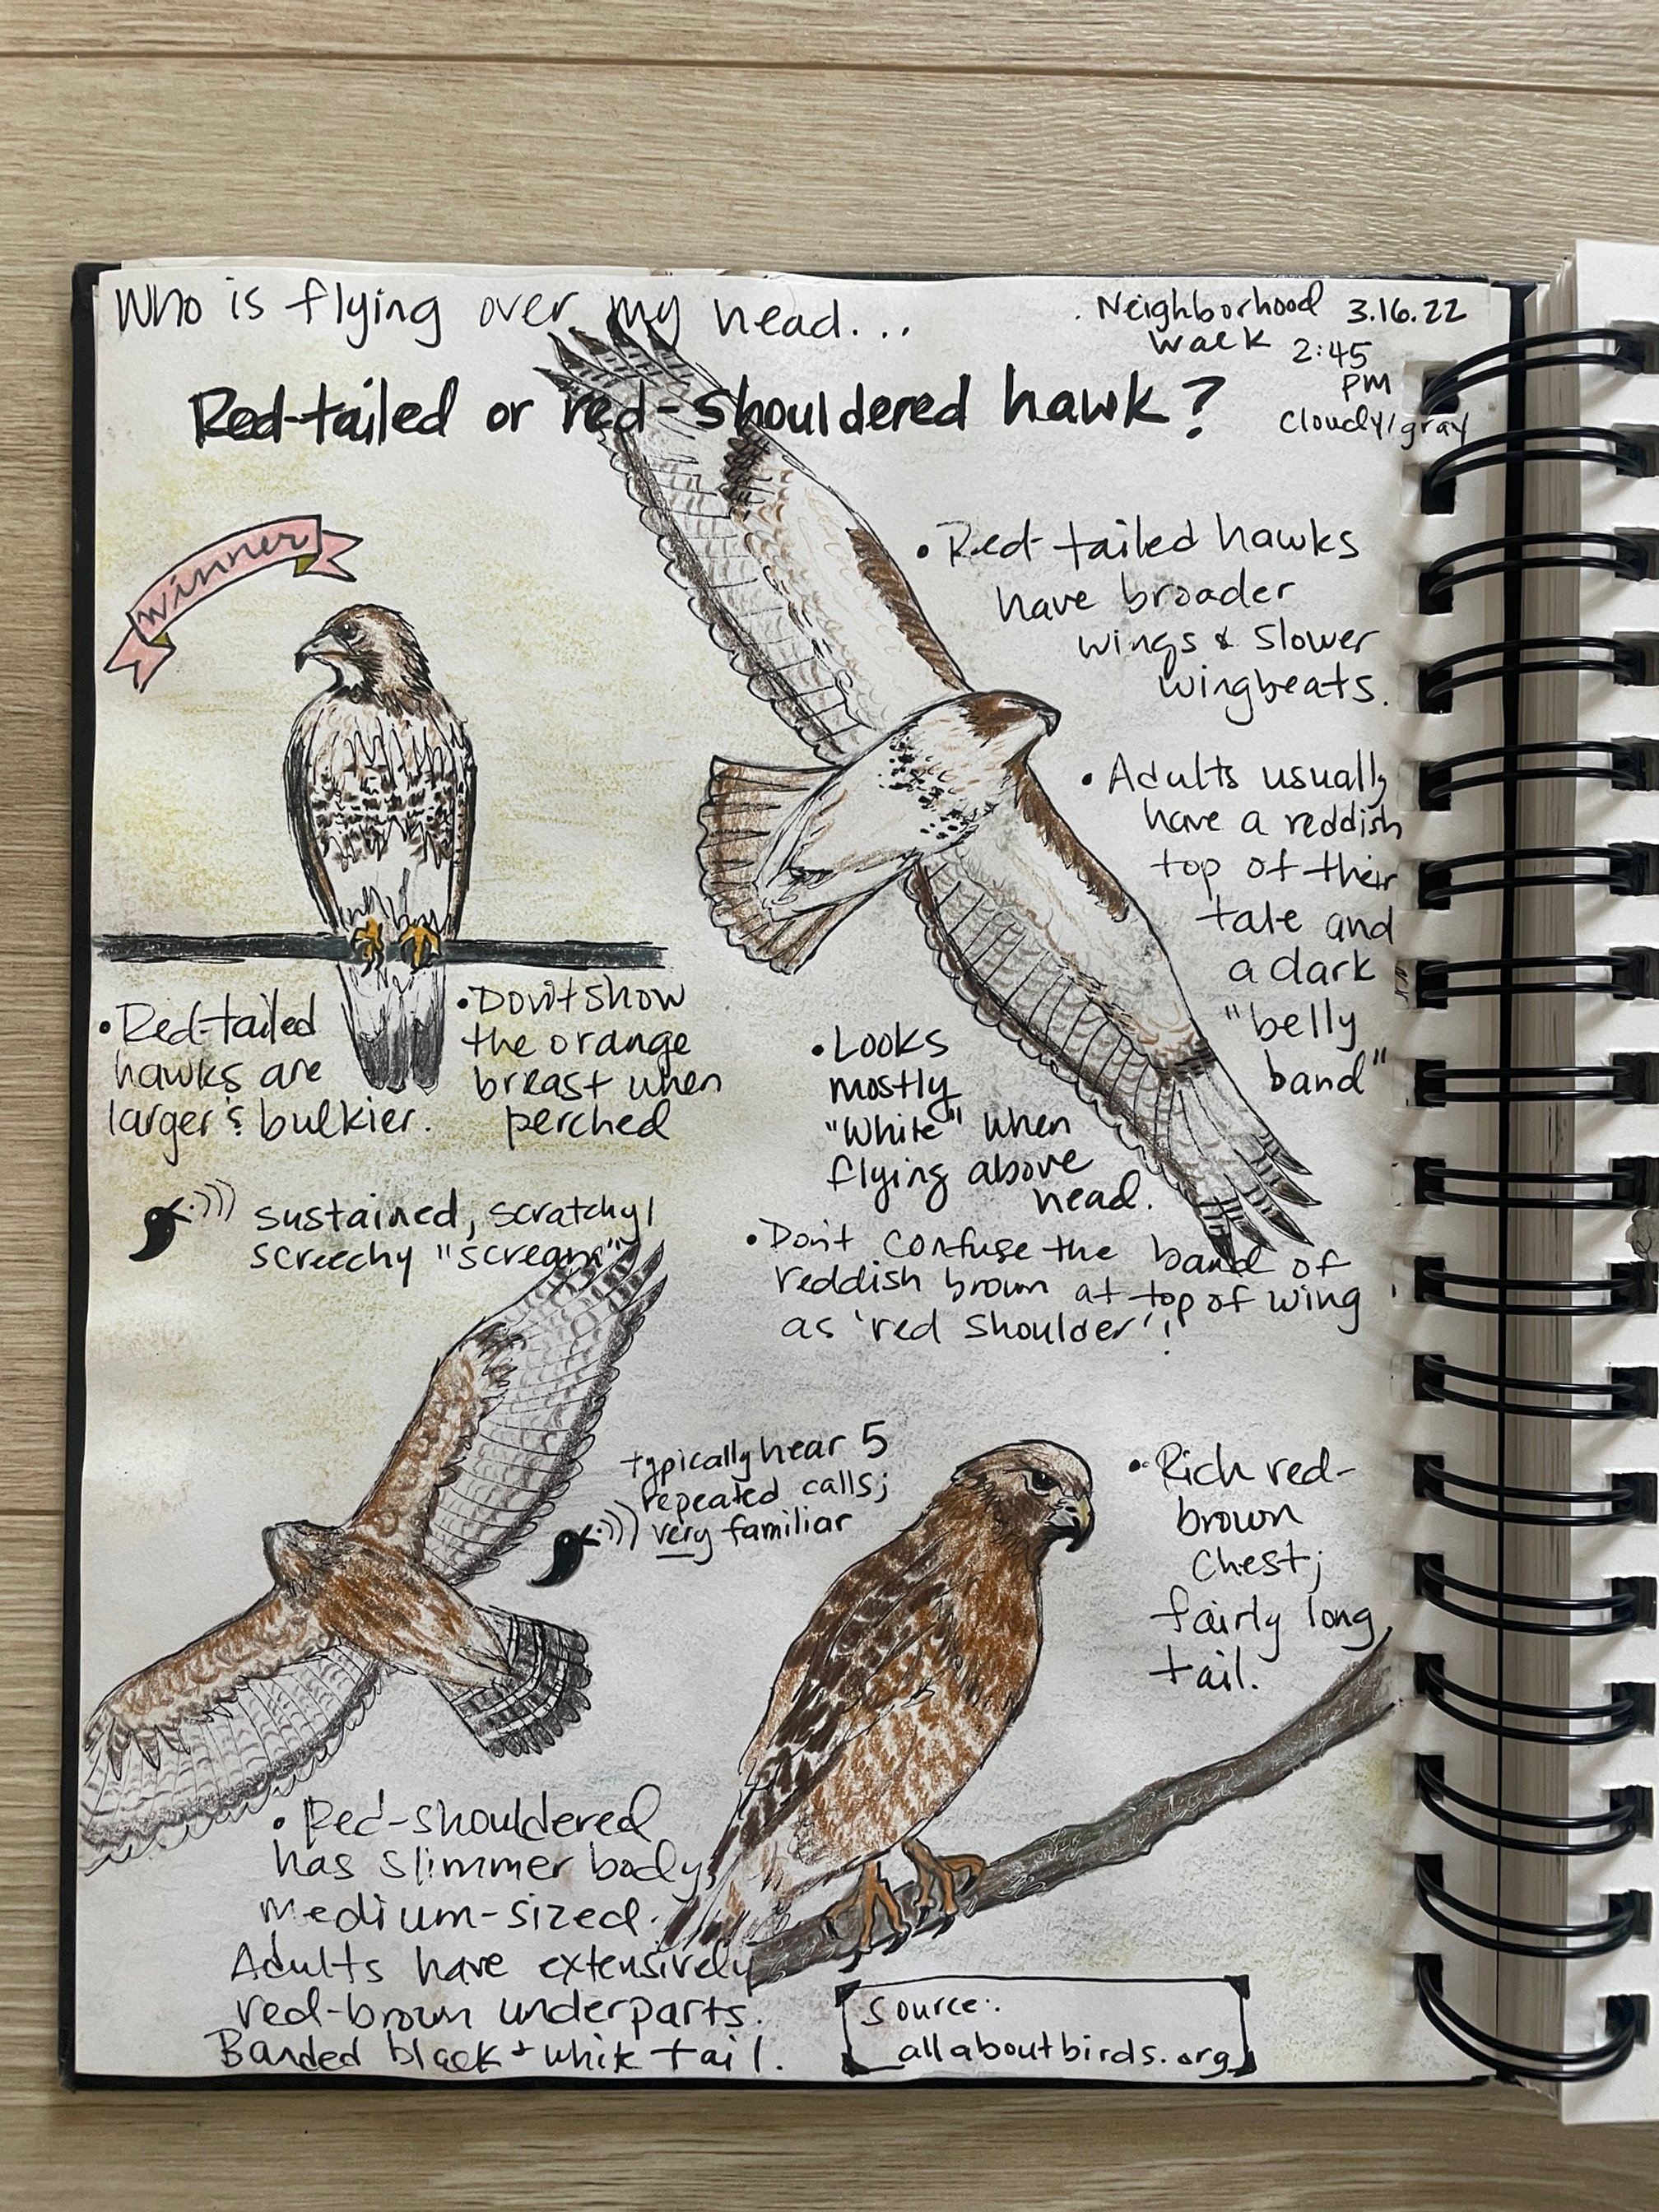 Who is flying over my head...
Neighborhood 3.16.22
Walk 2:45
PM
Cloudy/gray
Red-tailed or red-shouldered hawk?
winner
• Red-tailed hawks
have broader
wings & slower
wingbeats.
• Adults usually
have a reddish
top of their
tale and
a dark
"belly
band"
• Red-tailed
hawks are
larger & bulkier.
• Don't show
the orange
breast when
perched
• Looks
mostly
"White" when
flying above
head.
sustained, scratchy/
screechy "scream"
• Don't confuse the band of
reddish brown at top of wing
as 'red shoulder'!
typically hear 5
repeated calls;
very familiar
• Rich red-
brown
chest;
fairly long
tail.
• Red-shouldered
has slimmer body,
medium-sized.
Adults have extensively
red-brown underparts.
Banded black + white tail.
Source:
allaboutbirds.org